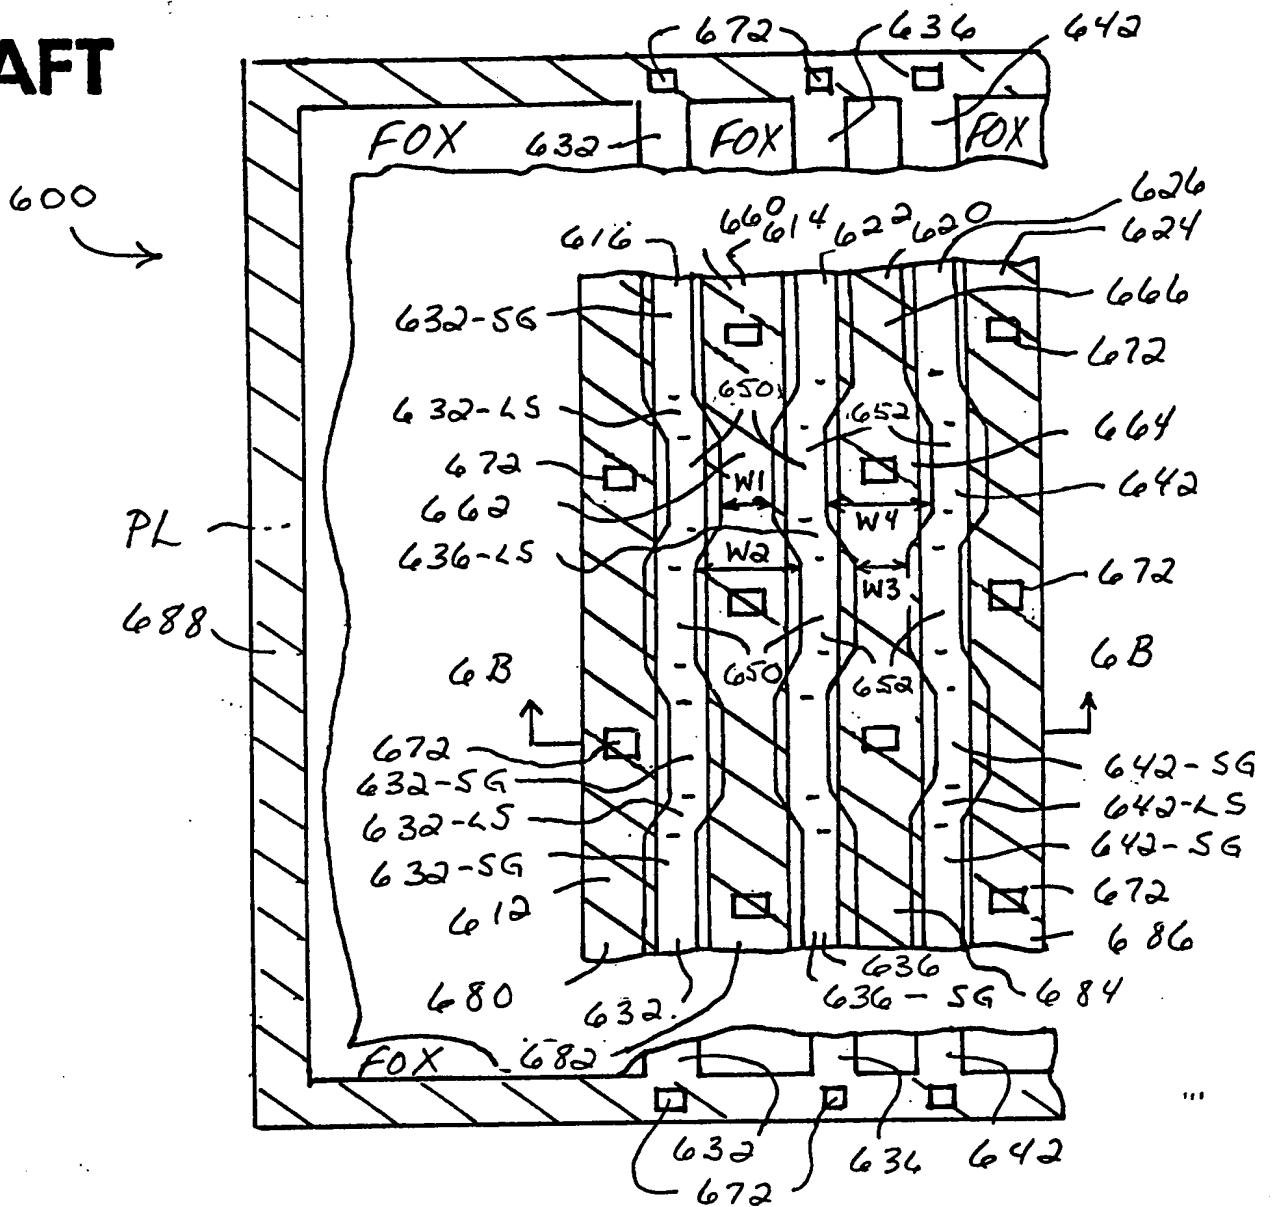 AFT
672 636 642
FOX 632 FOX FOX
600
626
616 660 614 622 620 624
632-SG 666
672
650
632-LS 652 664
672 W1 642
662 W4
PL
636-LS W2 W3 672
688
650 652
6B 6B
672 642-SG
632-SG 642-LS
632-LS 642-SG
632-SG 672
612 686
636
680 632 636-SG 684
FOX 682
632 636 642
672